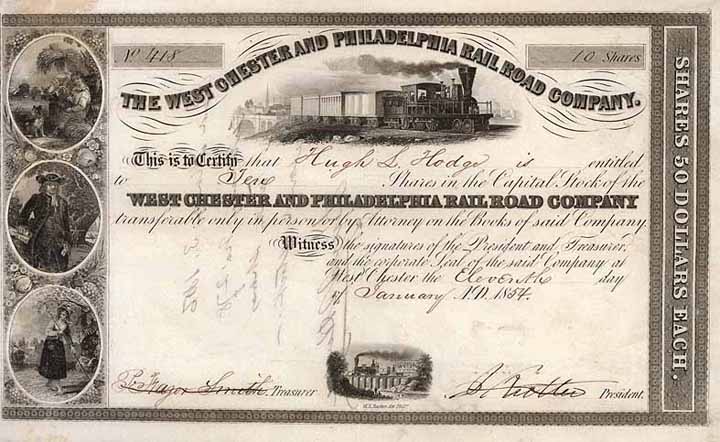 No 418
10 Shares
THE WEST CHESTER AND PHILADELPHIA RAIL ROAD COMPANY.
This is to Certify that Hugh L. Hodge is entitled
to Ten Shares in the Capital Stock of the
WEST CHESTER AND PHILADELPHIA RAIL ROAD COMPANY
transferable only in person or by Attorney on the Books of said Company.
Witness the signatures of the President and Treasurer,
and the corporate Seal of the said Company at
West Chester the Eleventh day
of January A.D. 1854.
Smith Treasurer
President.
SHARES 50 DOLLARS EACH.